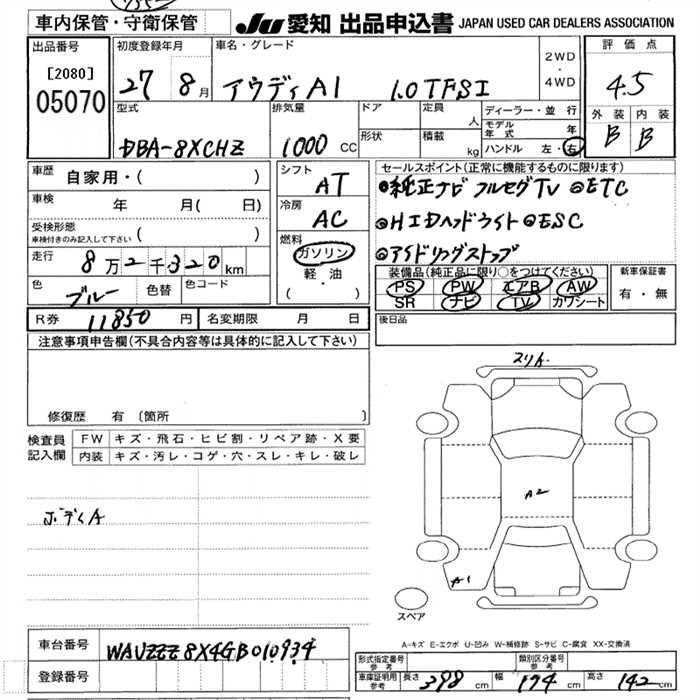 車内保管・守衛保管
JU 愛知 出品申込書 JAPAN USED CAR DEALERS ASSOCIATION
出品番号
[2080]
05070
初度登録年月
27 8月
車名・グレード
アウディA1 1.0TFSI
2WD
・
4WD
評価点
4.5
外装 内装
B B
型式
DBA-8XCHZ
排気量
1000 CC
ドア
形状
定員
人
積載
kg
ディーラー・並行
モデル年式 年
ハンドル 左・右
車歴
自家用・( )
車検 年 月( 日)
受検形態
車検付きのみ記入して下さい ( )
走行 8万2千320km
色 ブルー 色替 色コード
シフト
AT
冷房
AC
燃料
ガソリン
軽・油
( ・ )
セールスポイント(正常に機能するものに限ります)
●純正ナビ フルセグTV ◎ETC
◎HIDヘッドライト ◎ESC
◎アイドリングストップ
装備品(純正品に限り○をつけてください)
PS PW エアB AW
SR ナビ TV カワシート
新車保証書
有・無
R券 11850 円 名変期限 月 日
後日品
注意事項申告欄(不具合内容等は具体的に記入して下さい)
修復歴 有 〔箇所
検査員記入欄
FW キズ・飛石・ヒビ割・リペア跡・X要
内装 キズ・汚レ・コゲ・穴・スレ・キレ・破レ
ボディA
スリキ
A2
A1
スペア
A-キズ E-エクボ U-凹み W-補修跡 S-サビ C-腐食 XX-交換済
車台番号 WAUZZZ8X4GB010934
登録番号
形式指定番号 参考
類別区分番号 参考
車庫証明用 参考
長さ 398 cm 幅 174 cm 高さ 142 cm